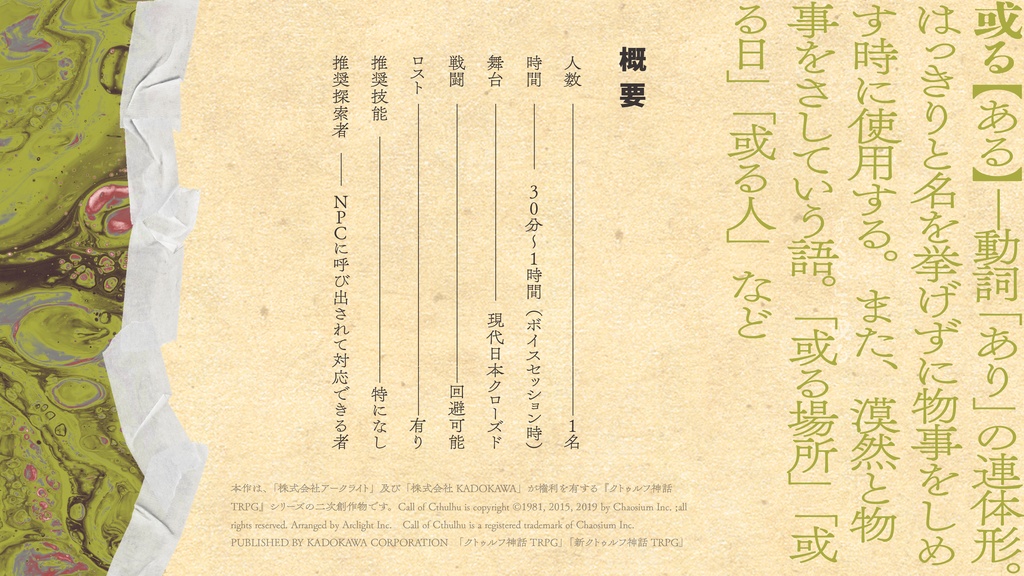 或る【ある】―動詞「あり」の連体形。
はっきりと名を挙げずに物事をしめ
す時に使用する。また、漠然と物
事をさしていう語。「或る場所」「或
る日」「或る人」など
概要
人数 ― 1名
時間 ― 30分～1時間（ボイスセッション時）
舞台 ― 現代日本クローズド
戦闘 ― 回避可能
ロスト ― 有り
推奨技能 ― 特になし
推奨探索者 ― NPCに呼び出されて対応できる者
本作は、「株式会社アークライト」及び「株式会社 KADOKAWA」が権利を有する『クトゥルフ神話
TRPG』シリーズの二次創作物です。Call of Cthulhu is copyright ©1981, 2015, 2019 by Chaosium Inc. ;all
rights reserved. Arranged by Arclight Inc. Call of Cthulhu is a registered trademark of Chaosium Inc.
PUBLISHED BY KADOKAWA CORPORATION 「クトゥルフ神話 TRPG」『新クトゥルフ神話 TRPG』